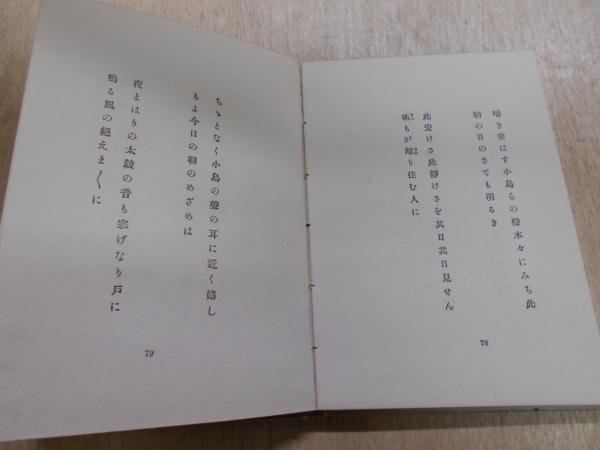 啼き交はす小鳥らの聲木々にみち此
朝の日のさても明るき
此安けさ此靜けさを其日其日見せん
術もが離り住む人に
78
ちゝとなく小鳥の聲の耳に近く嬉し
もよ今日の朝のめざめは
夜まはりの太鼓の音も寒げなり戸に
鳴る風の絶えま〱に
79